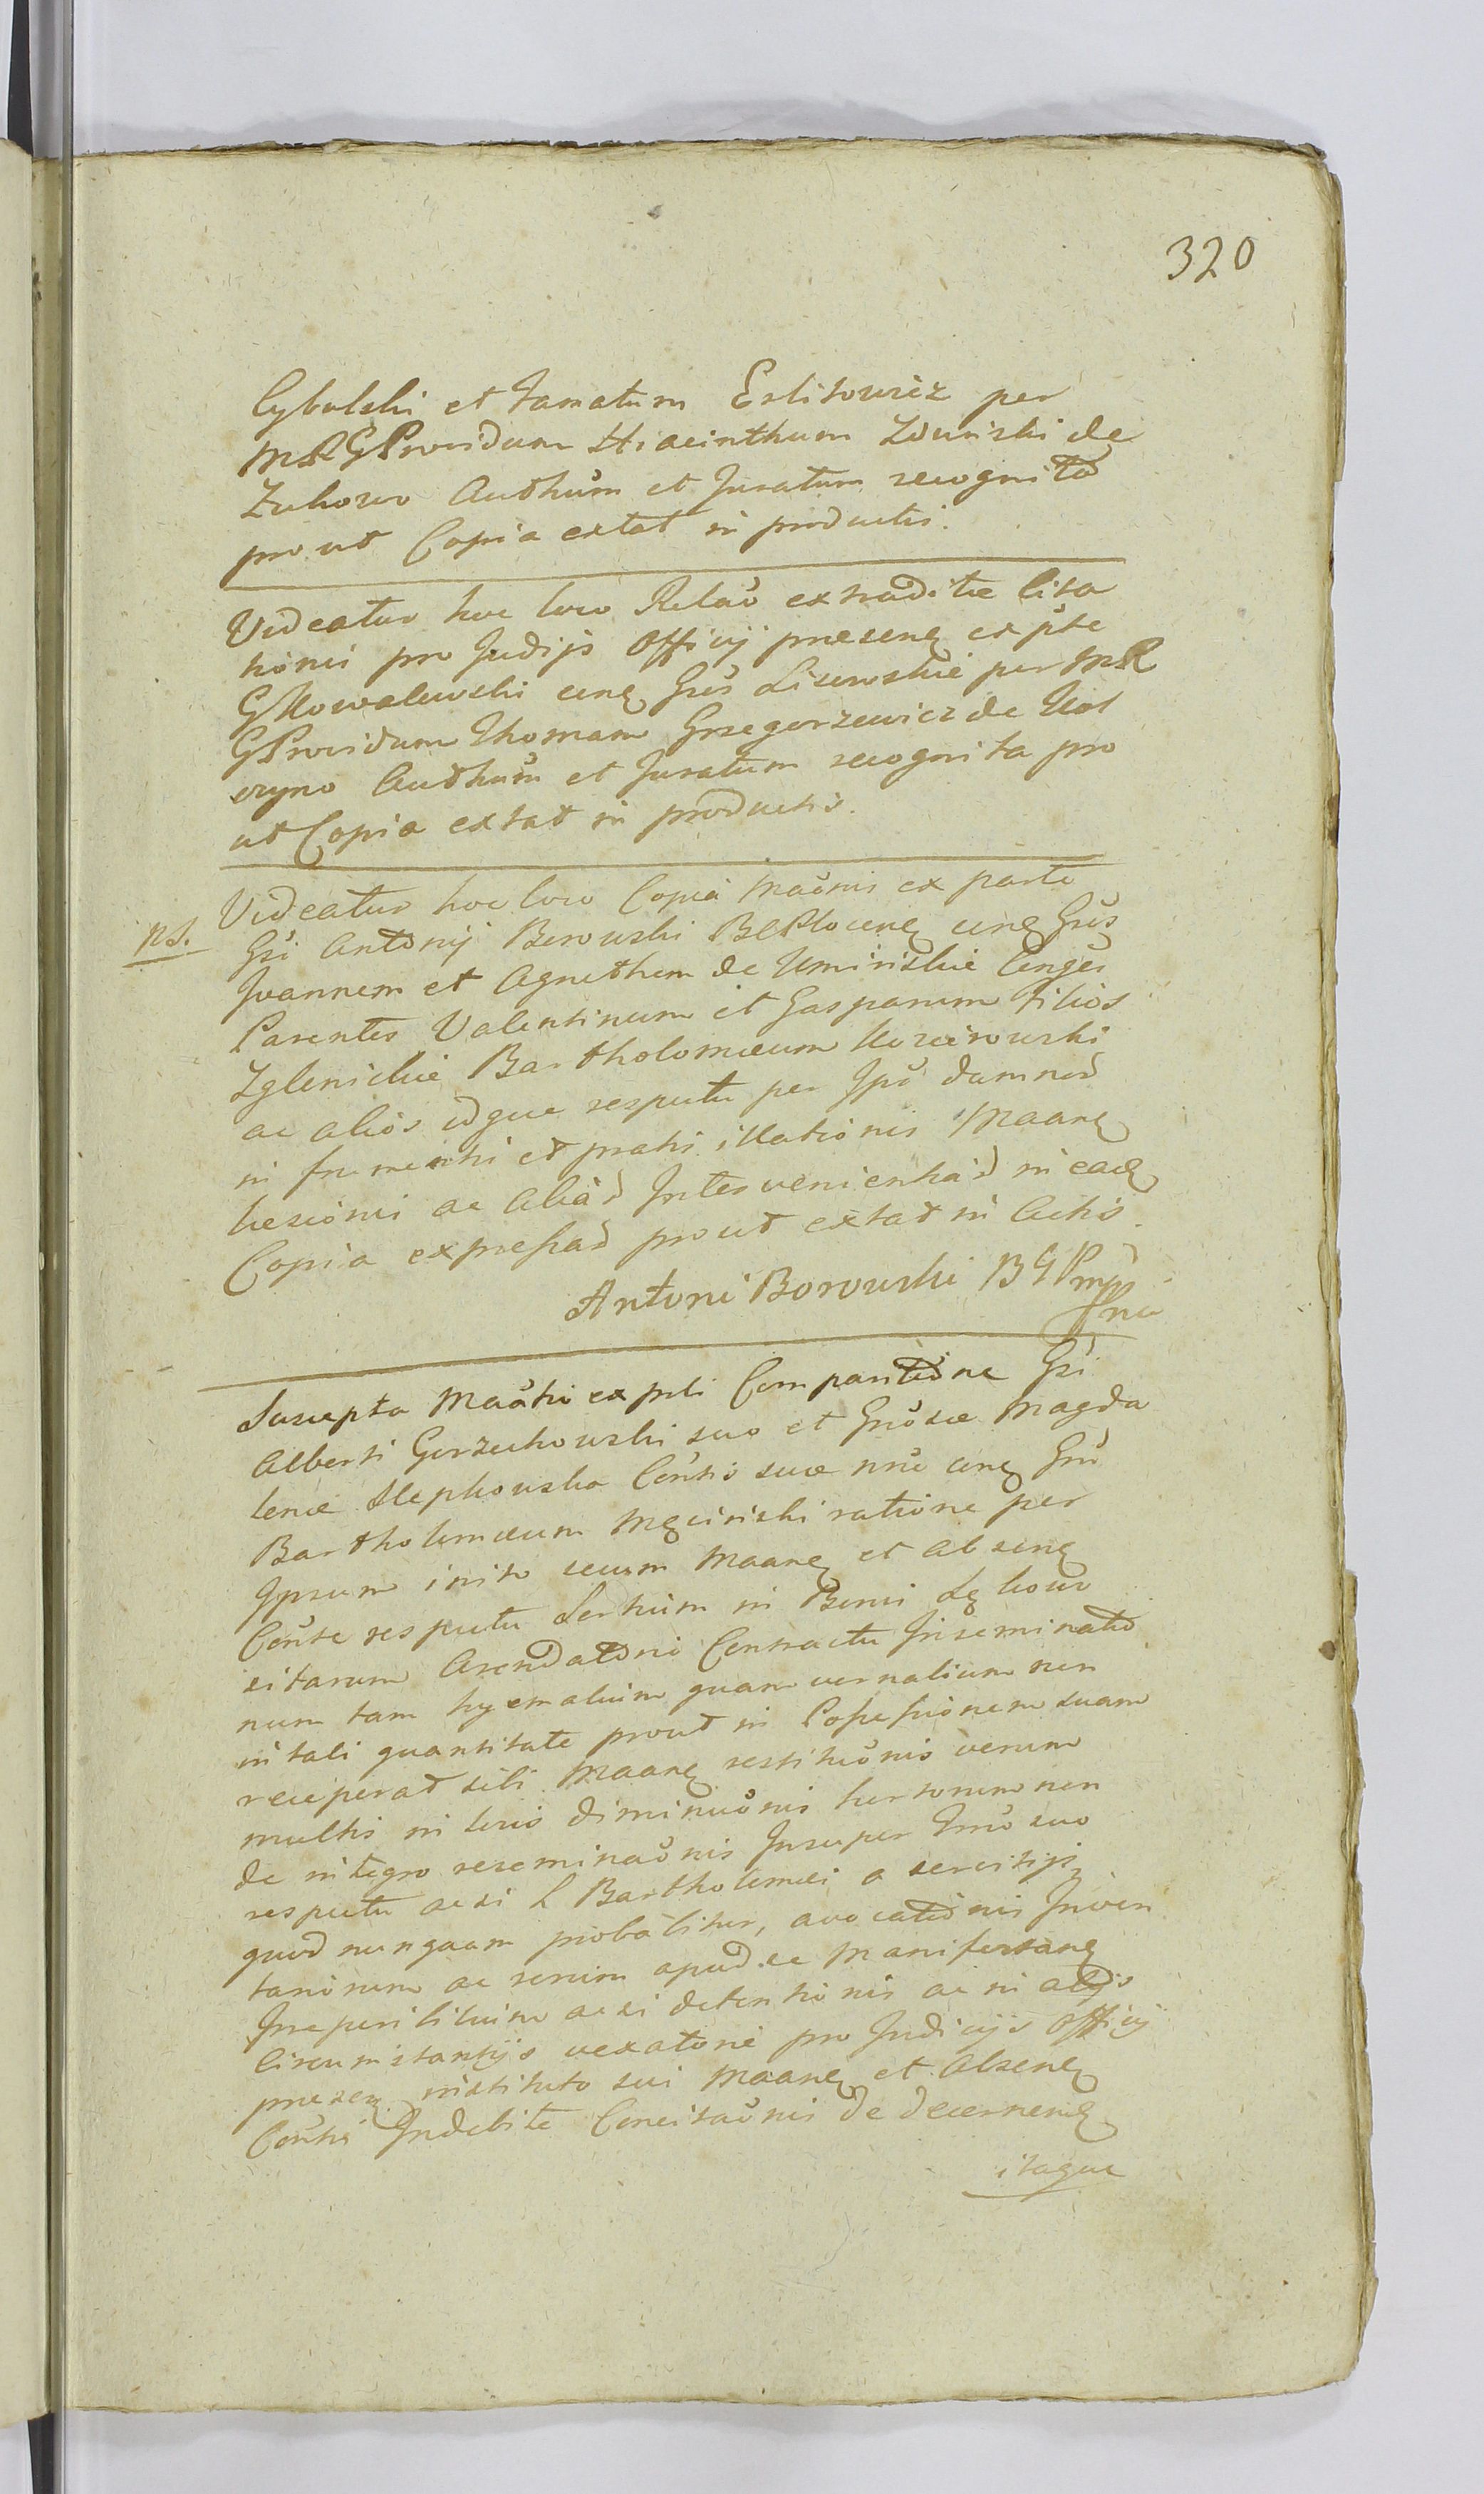 320
Cybulski et famatum Erlitowicz per
MRGProvidum Hiacinthum Zdunski de
Zukowo Authum et Juratum recognita
prout Copia extat in productis.
Videatur hoc loco Relao extraditæ Cita
tionis pro Judijs Officij præsenʒ ex pte
G Kowalewski cnʒ Gres Lisowskie per MR
GProvidum Thomam Grzegorzewicz de
Authum et Juratum recognita pro
ut Copia extat in productis.
ns.
Videatur hoc loco Copia Maonis ex parte
Gsi Antonij Borowski BGPlocenʒ cnʒ Gres
Joannem et Agnethem de Uminiskie Conges
Parentes Valentinum et Gasparum Filios
Zglenickie Bartholomæum
ac alios idque respectu per Ipso damnod
in frumenti et prati illationis Maanʒ
læsionis ac aliad Intervenientiad in eadʒ
Copia expressad prout extat in Actis.
Antoni Borowski BGPmp
Suscepta Maoni ex psli Comparitione Gsi
Alberti Gorzuchowski suo et Gnosæ Magda
lenæ Slepkowska Contis suæ nne cnʒ Gnu
Bartholomæum Męcinski ratione per
Ipsum inito secum Maanʒ et absenʒ
Conte respectu Sortium in Bonis Lękowo
sitarum Arendatorio Contractu Inseminatio
num tam hyemalium quam vernalium non
in tali quantitate prout in Possessionem suam
reciperat sibi Maanʒ restituonis verum
multis in locis diminuonis hortorum non
de integro reseminaonis Insuper Gnu suo
respectu acsi L Bartholomei a servitijs
quod nunquam probabitur, avocationis Inven
tariorum ac rerum apud se Manifestanʒ
Irreperibilium acsi detentionis ac in alijs
Circumstantijs vexatorie pro Judicijs Officij
præsenʒ instituto sui Maanʒ et absenʒ
Contis Indebite Concitaonis de decernenʒ
itaque